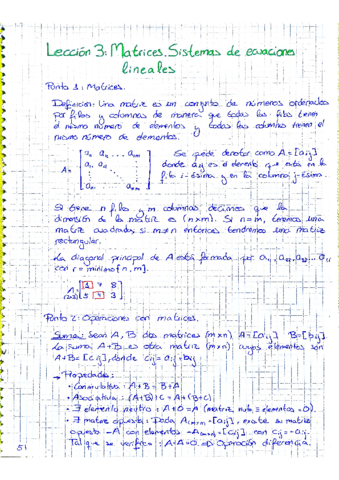 Lección 3: Matrices. Sistemas de ecuaciones
lineales
Punto 1: Matrices.
Definición: Una matriz es un conjunto de números ordenados
por filas y columnas de manera que todas las filas tienen
el mismo número de elementos y todas las columnas tienen el
mismo número de elementos.
Se puede denotar como A = [aij]
donde aij es el elemento que está en la
fila i-ésima y en la columna j-ésima.
A =
a11 a12 ... a1m
a21 a22
an1 ... anm
Si tiene n filas y m columnas, decimos que la
dimensión de la matriz es (n×m). Si n=m, tenemos una
matriz cuadrada, si m≠n entonces tendremos una matriz
rectangular.
La diagonal principal de A está formada por a11, a22, ... arr
con r = mínimo {n, m}.
A = 1 7 8
(2x3) 5 4 3
Punto 2: Operaciones con matrices.
Suma: Sean A, B dos matrices (m×n) A=[aij] B=[bij]
La suma A+B es otra matriz (m×n) cuyos elementos son
A+B=[cij], donde cij=aij+bij.
→ Propiedades:
• Conmutativa: A+B = B+A
• Asociativa: (A+B)+C = A+(B+C)
• ∃ elemento neutro: A+0=A (matriz nula = elementos = 0).
• ∃ matriz opuesta: Dada A(m×n)=[aij], existe su matriz
opuesta -A con elementos -A(m×n)=[cij] con cij = -aij.
Tal que se verifica: A+(-A)=0 ⇒ Operación diferencia.